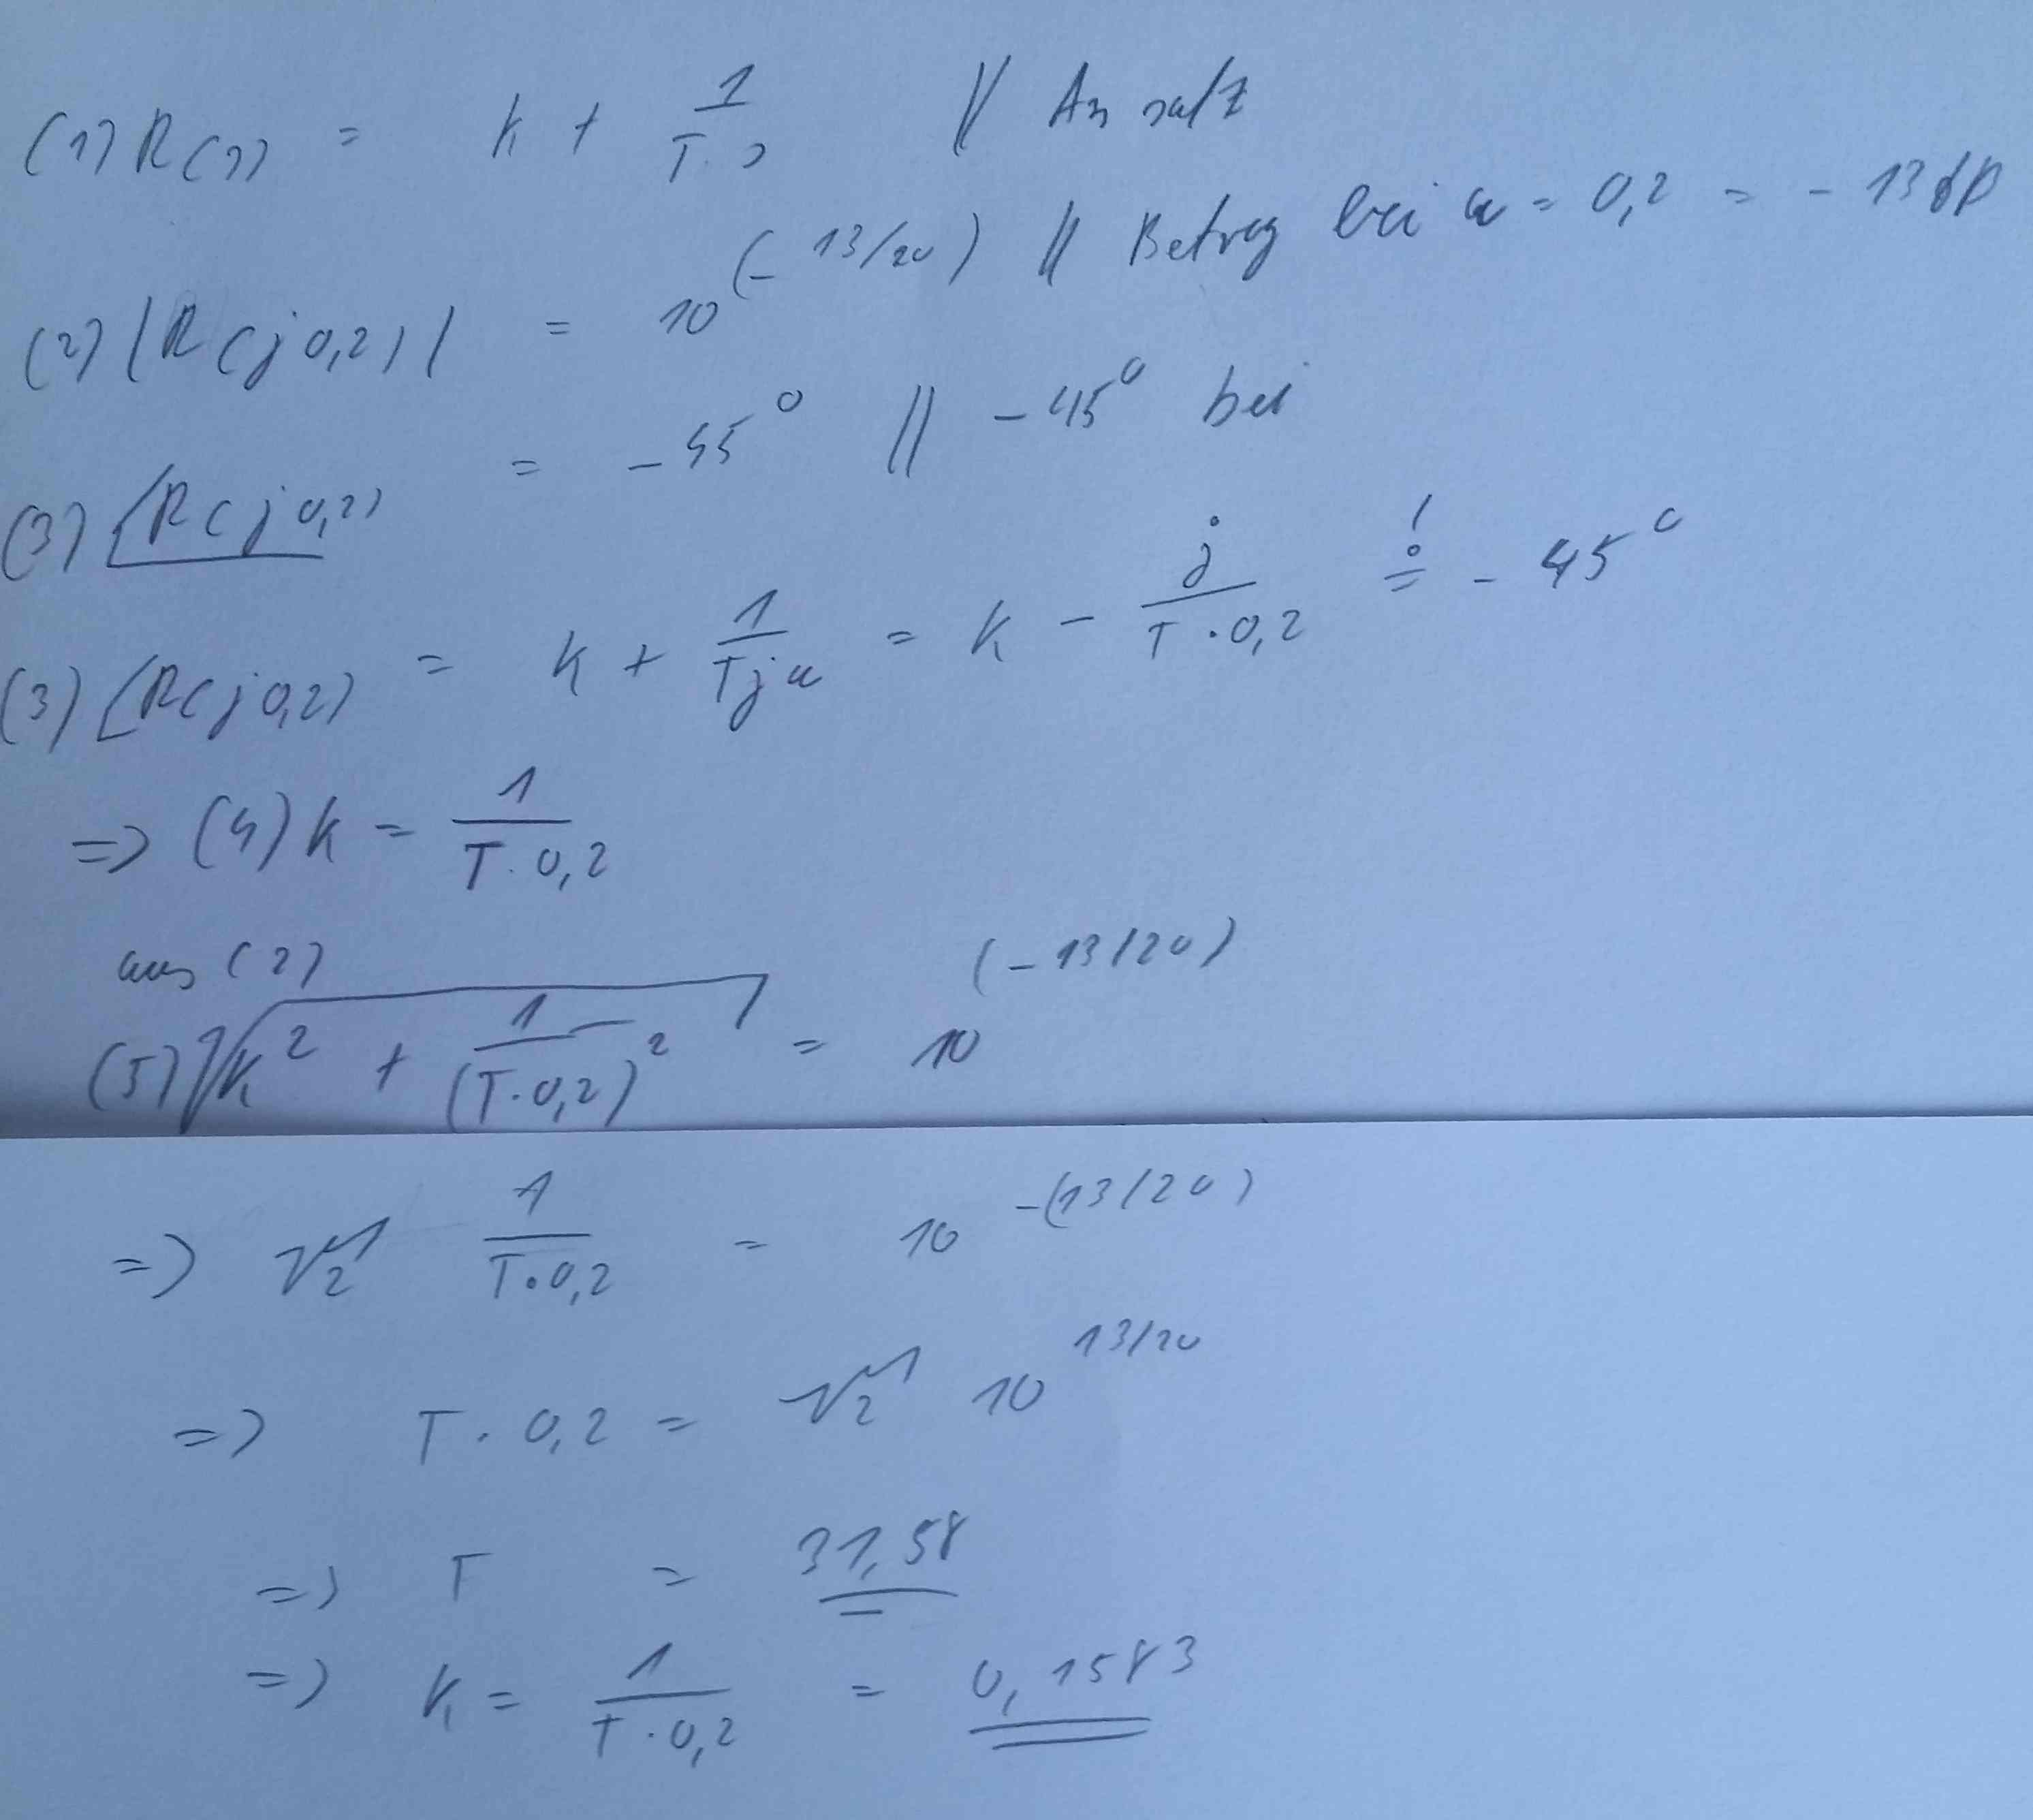 (1) R(s) = k + 1/(T·s) // Ansatz
(2) |R(j0,2)| = 10^(-13/20) // Betrag bei ω = 0,2 = -13dB
(3) ∠R(j0,2) = -45° // -45° bei
(3) ∠R(j0,2) = k + 1/(Tjω) = k - j/(T·0,2) =! -45°
=> (4) k = 1/(T·0,2)
aus (2)
(5) √(k² + 1/(T·0,2)²) = 10^(-13/20)
=> √2 1/(T·0,2) = 10^-(13/20)
=> T·0,2 = √2 10^13/20
=> T = 31,58
=> k = 1/(T·0,2) = 0,1583